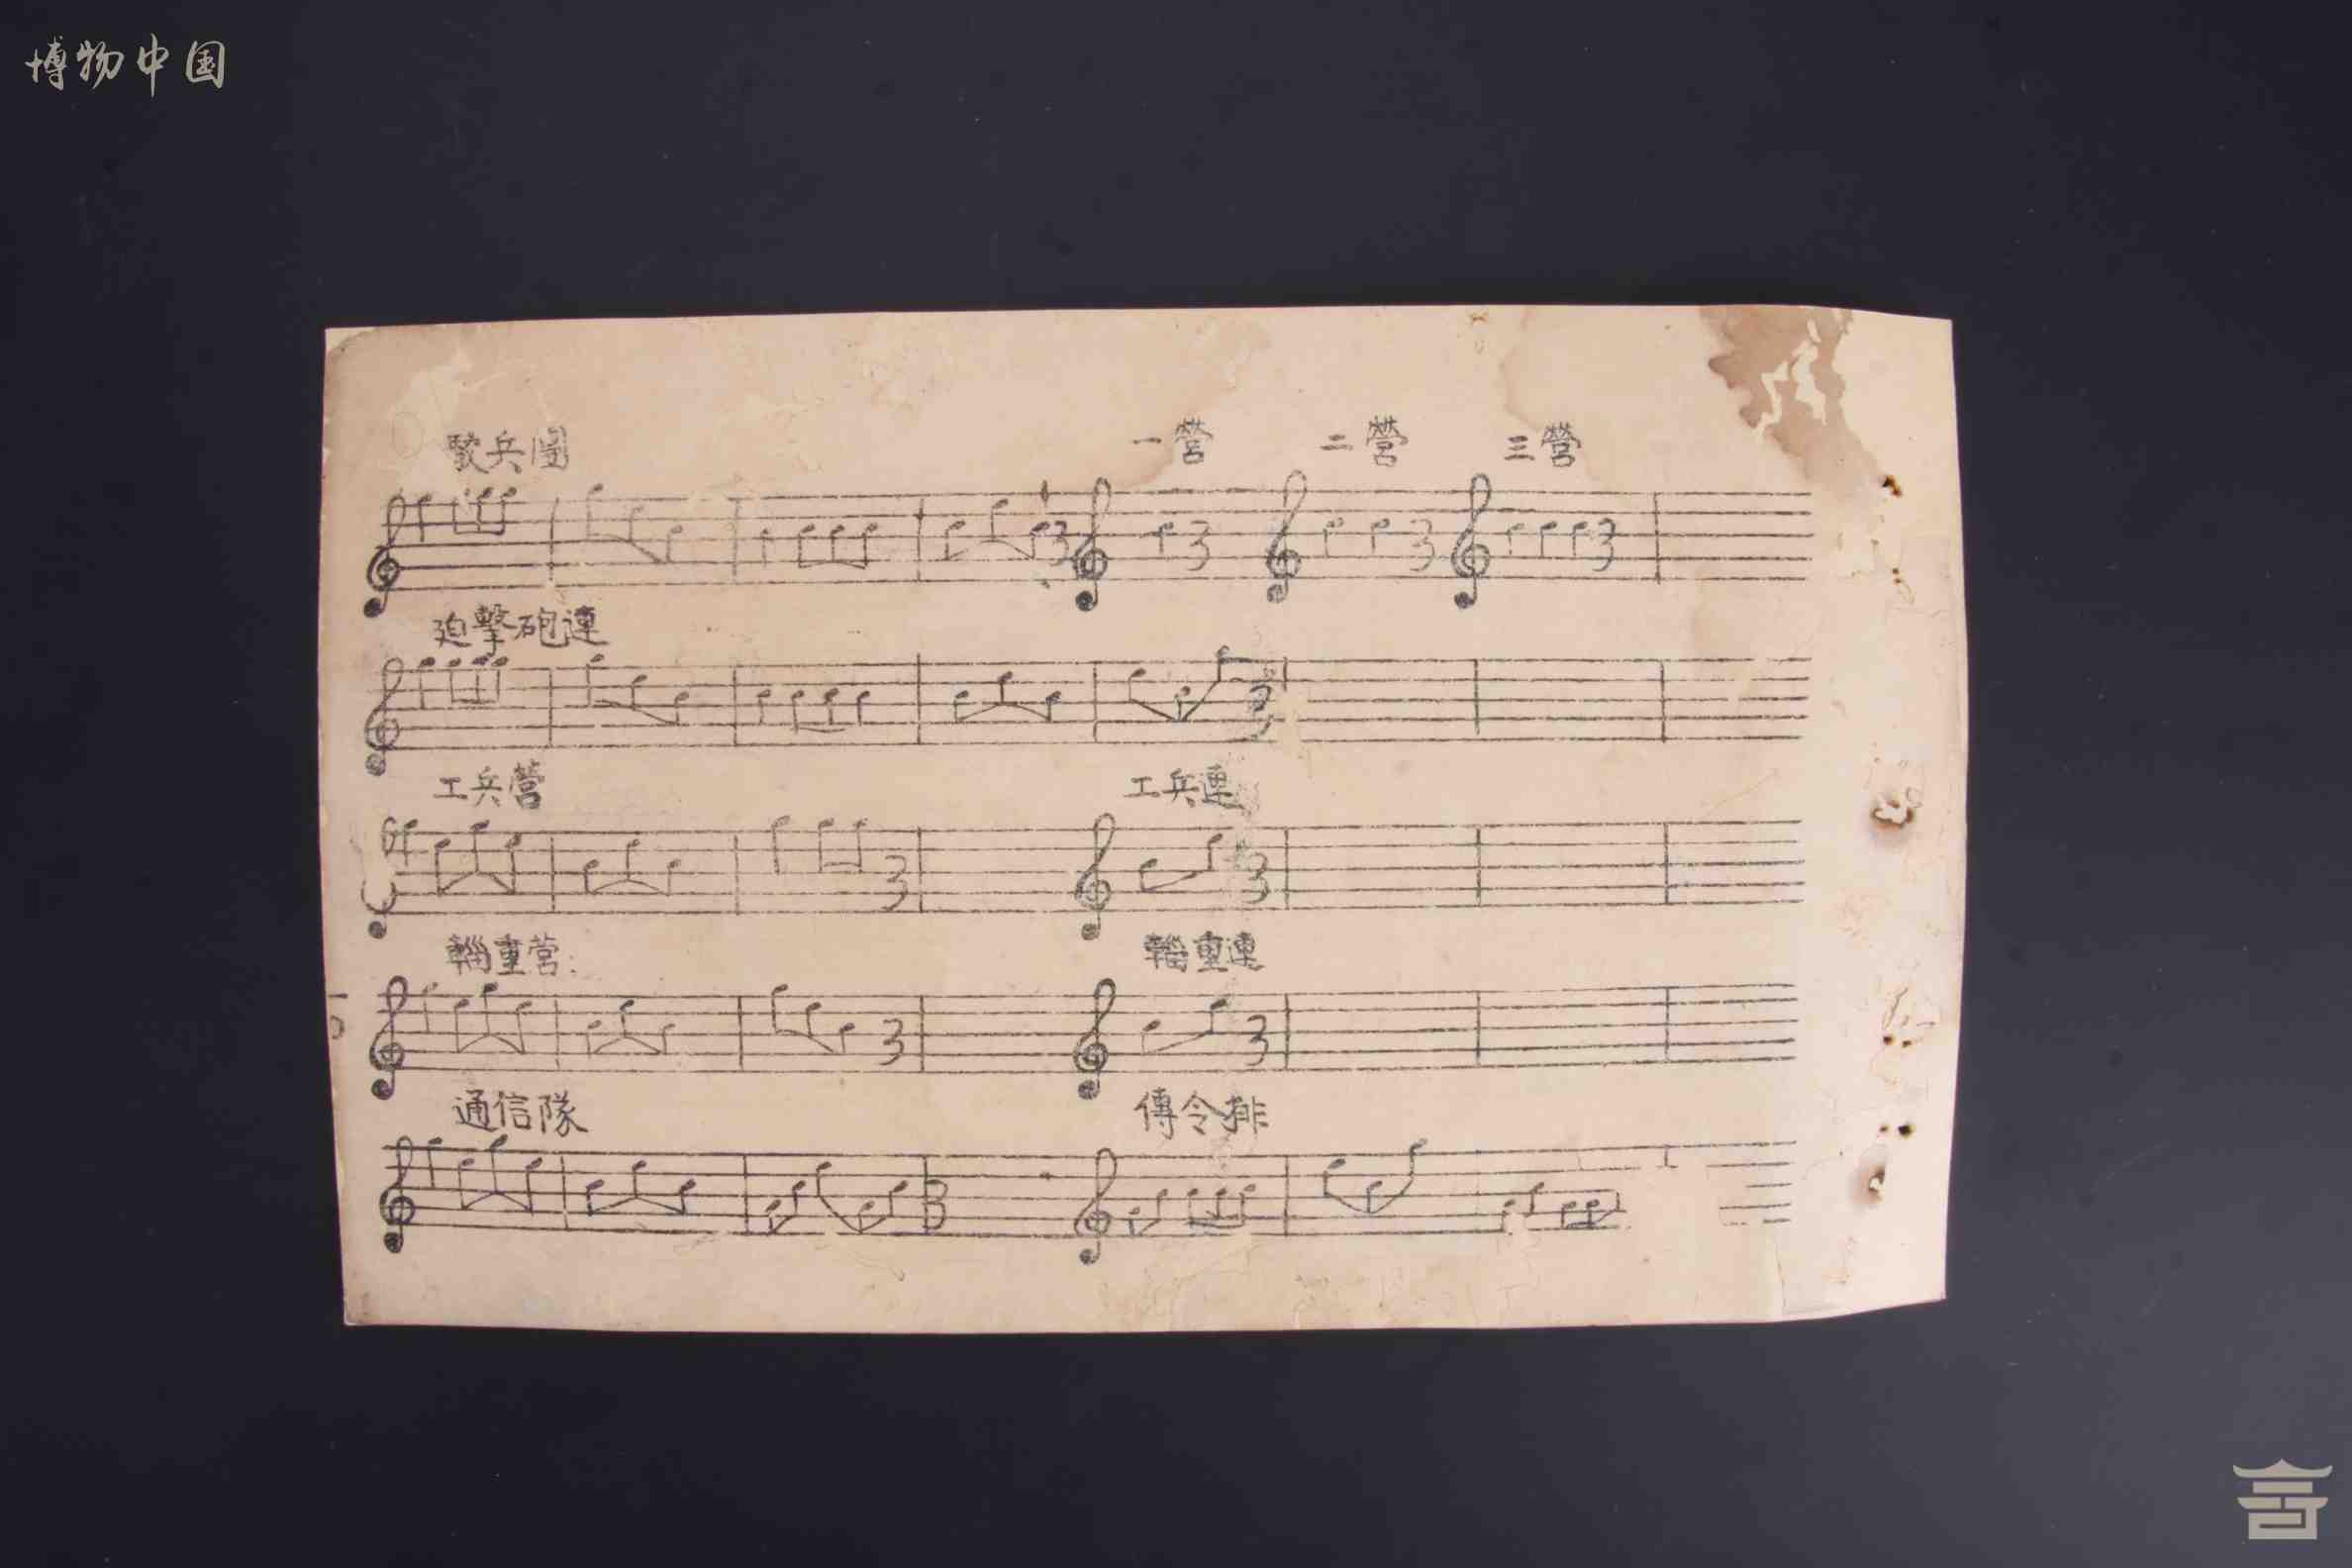 博物中国
駁兵團 一營 二營 三營
迫擊砲連
工兵營 工兵連
輜重营 輜重連
通信隊 傳令排